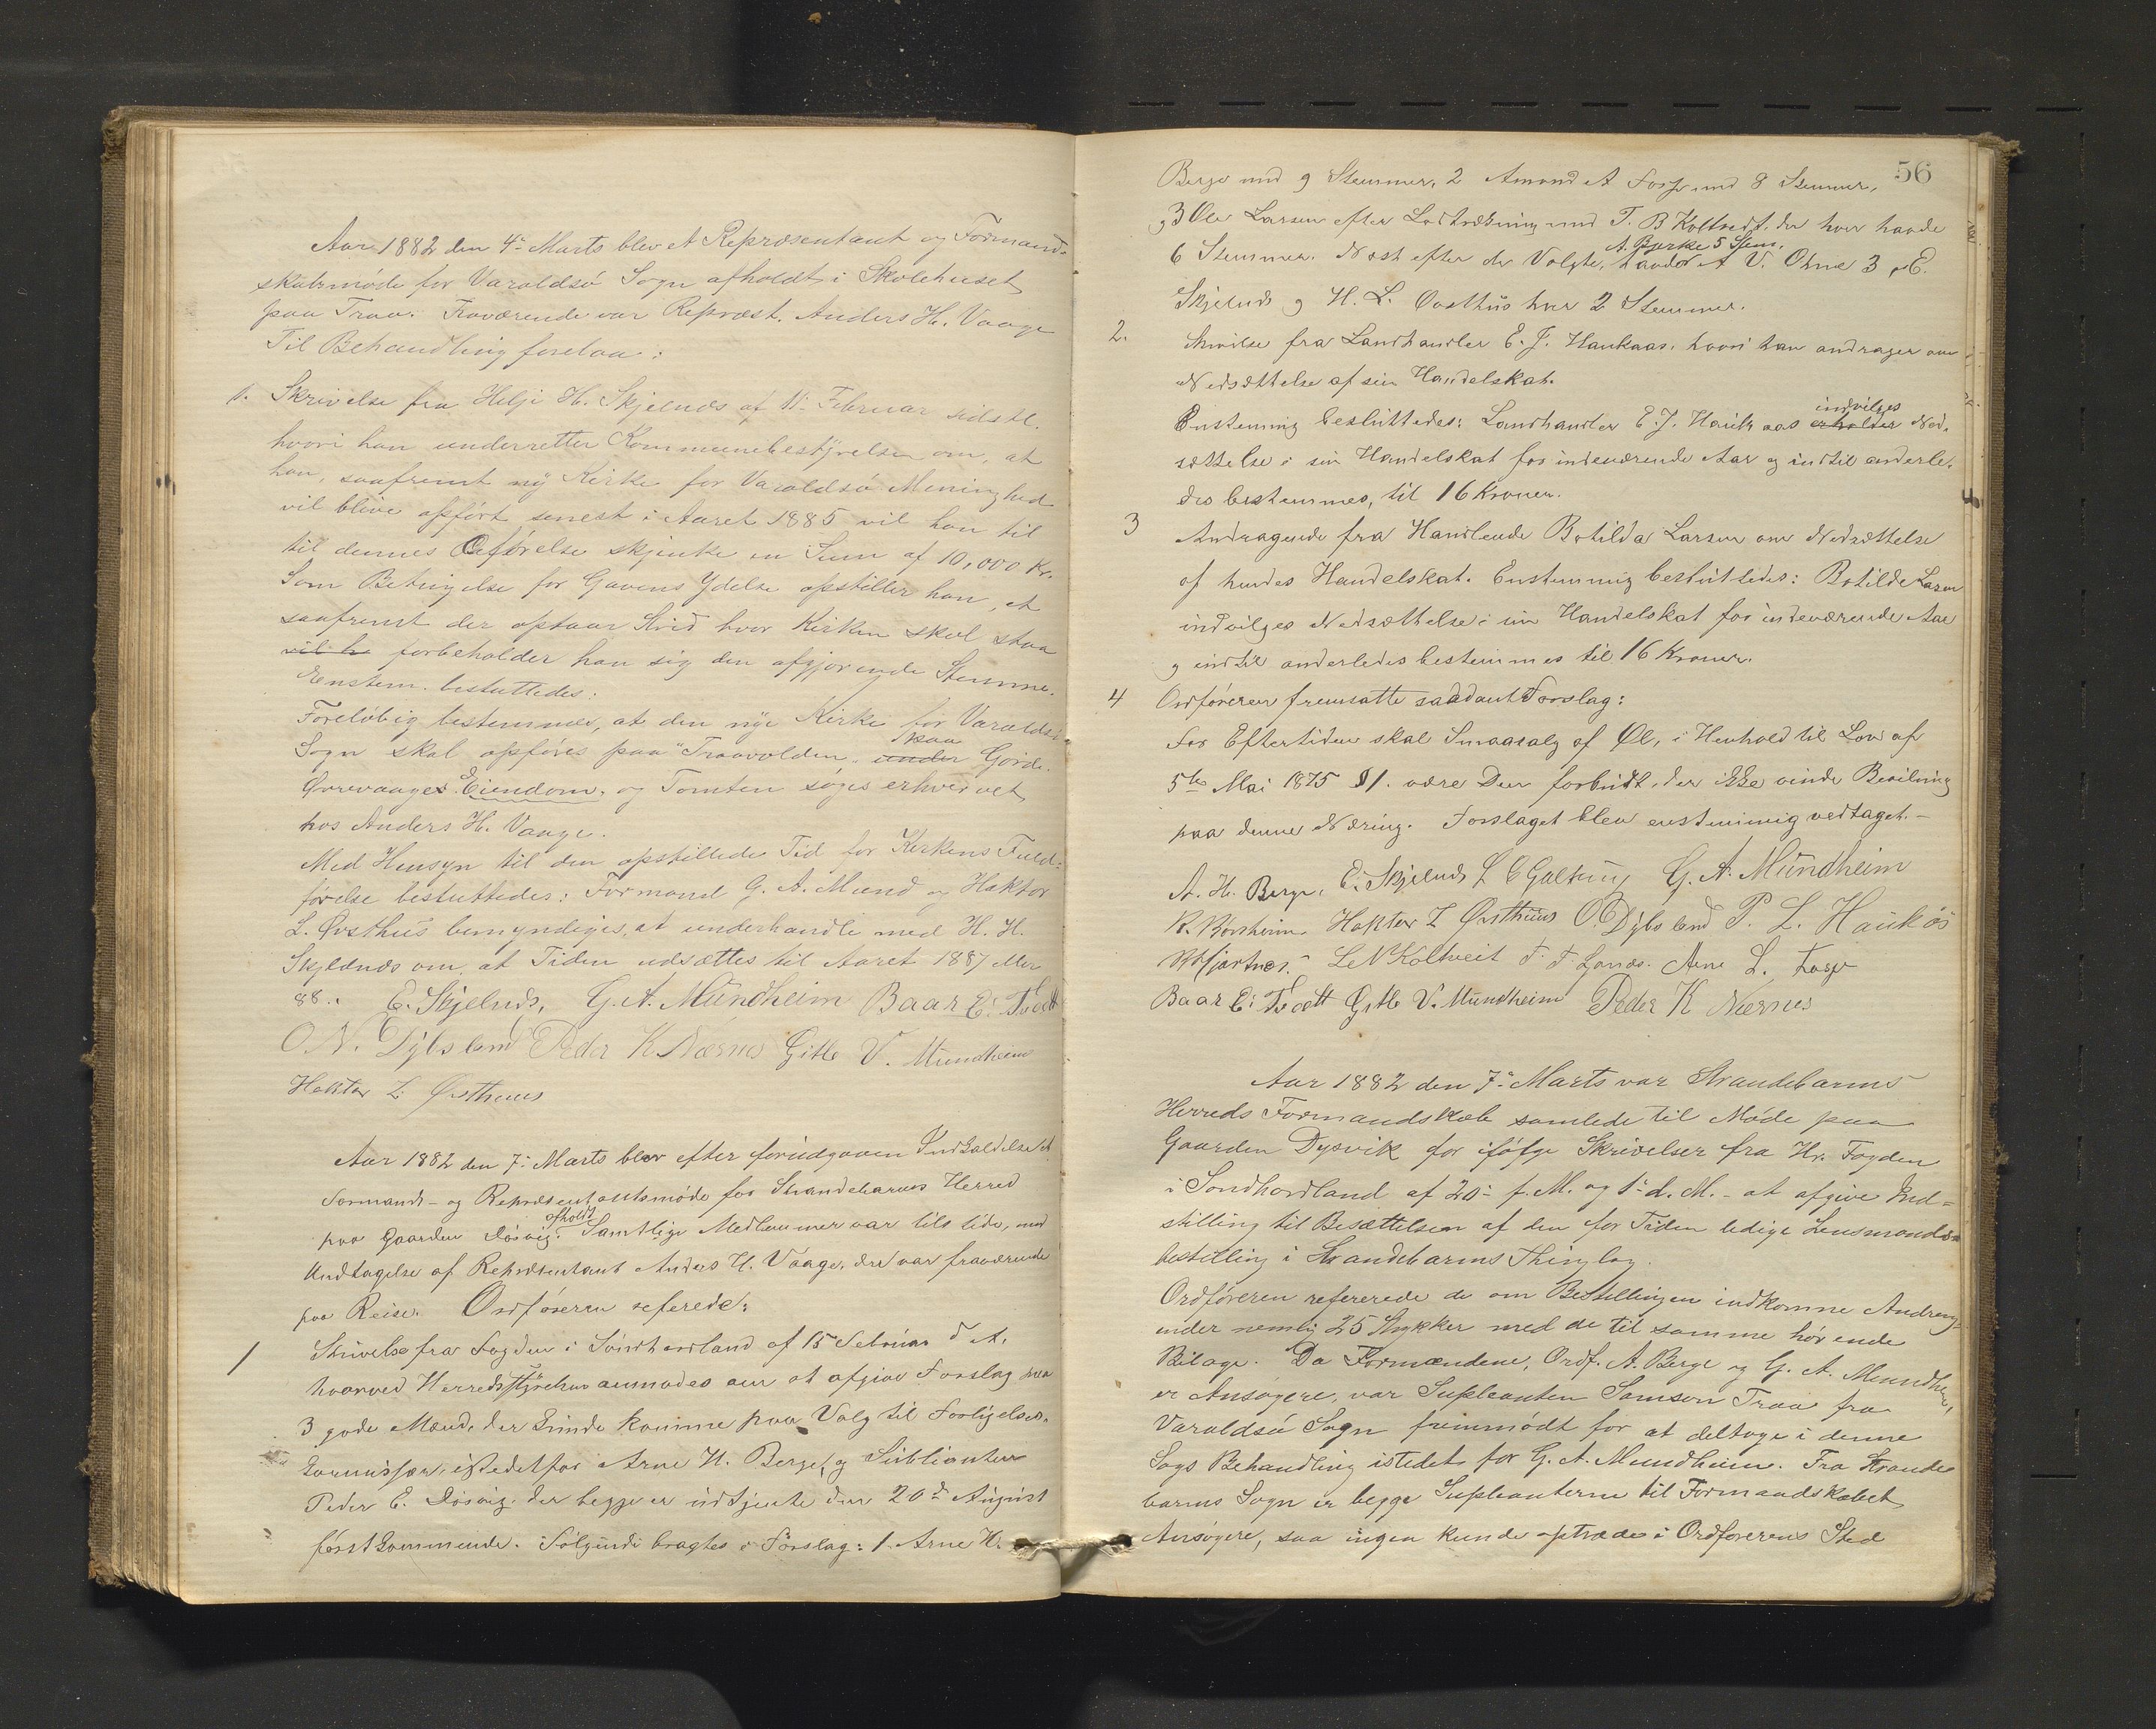 Aar 1882 den 4de Marts blev et Repræsentant og Formand-
skabsmøde for Varaldsø Sogn afholdt i Skolehuset
paa Traa. Fraværende var Repræst. Anders H. Vaage
Til Behandling forelaa:
1. Skrivelse fra Helje H. Skjelnæs af 11. Februar sidstl.
hvori han underretter Kommunebestyrelsen om, at
han, saafremt ny Kirke for Varaldsø Menighed
vil blive opført senest i Aaret 1885 vil han til
til dennes Opførelse skjenke en Sum af 10,000 Kr.
Som Betingelse for Gavens Ydelse opstiller han, at
saafremt der opstaar Strid hvor Kirken skal staa
vil h forbeholder han sig den afgjørende Stemme.
Eenstem. besluttedes:
Foreløbig bestemmes, at den nye Kirke for Varaldsø
Sogn skal opføres paa "Traavolden" under paa Gjerde.
Øvrevaages Eiendom, og Tomten søges erhvervet
hos Anders H. Vaage.
Med Hensyn til den opstillede Tid for Kirkens Fuld-
førelse besluttedes: Formand G. A. Mund og Haktor
L. Øvsthus bemyndiges, at underhandle med H. H.
Skjelnæs om, at Tiden udsættes til Aaret 1887 eller
88.. E. Skjelnæs, G. A. Mundheim Baar E. Tvedt
O N. Dybsland Peder K Nærnes Gitle V. Mundheim
Haktor L Øvsthuus
Aar 1882 den 7: Marts blev efter forudgaaen Indkaldelse et
Formands- og Repræsentantsmøde for Strandebarms Herred
paa Gaarden Døsvig afholdt. Samtlige Medlemmer var tilstede, med
Undtagelse af Repræsentant Anders H. Vaage, der var fraværende
paa Reise. Ordføreren refererede:
1 Skrivelse fra Fogden i Søndhordland af 15 Februar d. A.
hvorved Herredsstyrelsen anmodes om at afgive Forslag paa
3 gode Mænd, der kunde komme paa Valg til Forligelses-
kommissær, istedetfor Arne H. Berge, og Subleanten
Peder E. Døsvig, der begge er udtjente den 20de August
førstkommende. Følgende bragtes i Forslag: 1. Arne H.
56
Berge med 9 Stemmer, 2 Amund A Fosse med 8 Stemmer,
og 3 Ole Larsen efter Lodtrækning med T. B Koltvedt, der hver havde
6 Stemmer. Næst efter de Valgte, havde A. Bjerke 5 Stem. A V. Omre 3 og E.
Skjelnæs og H. L. Øvsthus hver 2 Stemmer.
2. Skrivelse fra Landhandler E. J. Haukaas, hvori han andrager om
Nedsættelse af sin Handelskat.
Enstemmig besluttedes: Landhandler E. J. Haukaas erholder indvilges Ned-
sættelse i sin Handelskat for indeværende Aar og indtil anderle-
des bestemmes, til 16 Kroner.
3 Andragende fra Handlende Botilda Larsen om Nedsættelse
af hendes Handelskat. Enstemmig besluttedes: Botilde Larsen
indvilges Nedsættelse i sin Handelskat for indeværende Aar
og indtil anderledes bestemmes til 16 Kroner.
4 Ordføreren fremsatte saadant Forslag:
For Eftertiden skal Smaasalg af Øl, i Henhold til Lov af
5te Mai 1875 §1. være Den forbudt, der ikke vinde Bevilning
paa denne Næring. Forslaget blev enstemmig vedtaget.-
A. H. Berge. E. Skjelnæs L E Galtung G. A. Mundheim
K. Børsheim Haktor L Øvsthuus O. Dybsland P. L. Haukås
Hjartnes. L N Koltveit T. T. Arne L. Fosse
Baar E: Tvedt Gitle V. Mundheim Peder K Nærnes
Aar 1882 den 7de Marts var Strandebarms
Herreds Formandskab samlede til Møde paa
Gaarden Dysvik for ifølge Skrivelser fra Hr. Fogden
i Søndhordland af 20de f. M. og 1ste d. M. - at afgive Ind-
stilling til Besættelsen af den for Tiden ledige Lensmands-
bestilling i Strandebarms Thinglag.
Ordføreren refererede de om Bestillingen indkomne Andrag-
ender nemlig 25 Stykker med de til samme hørende
Bilage. Da Formændene, Ordf. A. Berge og G. A. Mundheim,
er Ansøgere, var Supleanten Samson Traa fra
Varaldsø Sogn fremmødt for at deltage i denne
Sags Behandling istedet for G. A. Mundheim. Fra Strande
barms Sogn er begge Supleanterne til Formandskabet
Ansøgere, saa ingen kunde optræde i Ordførerens Sted